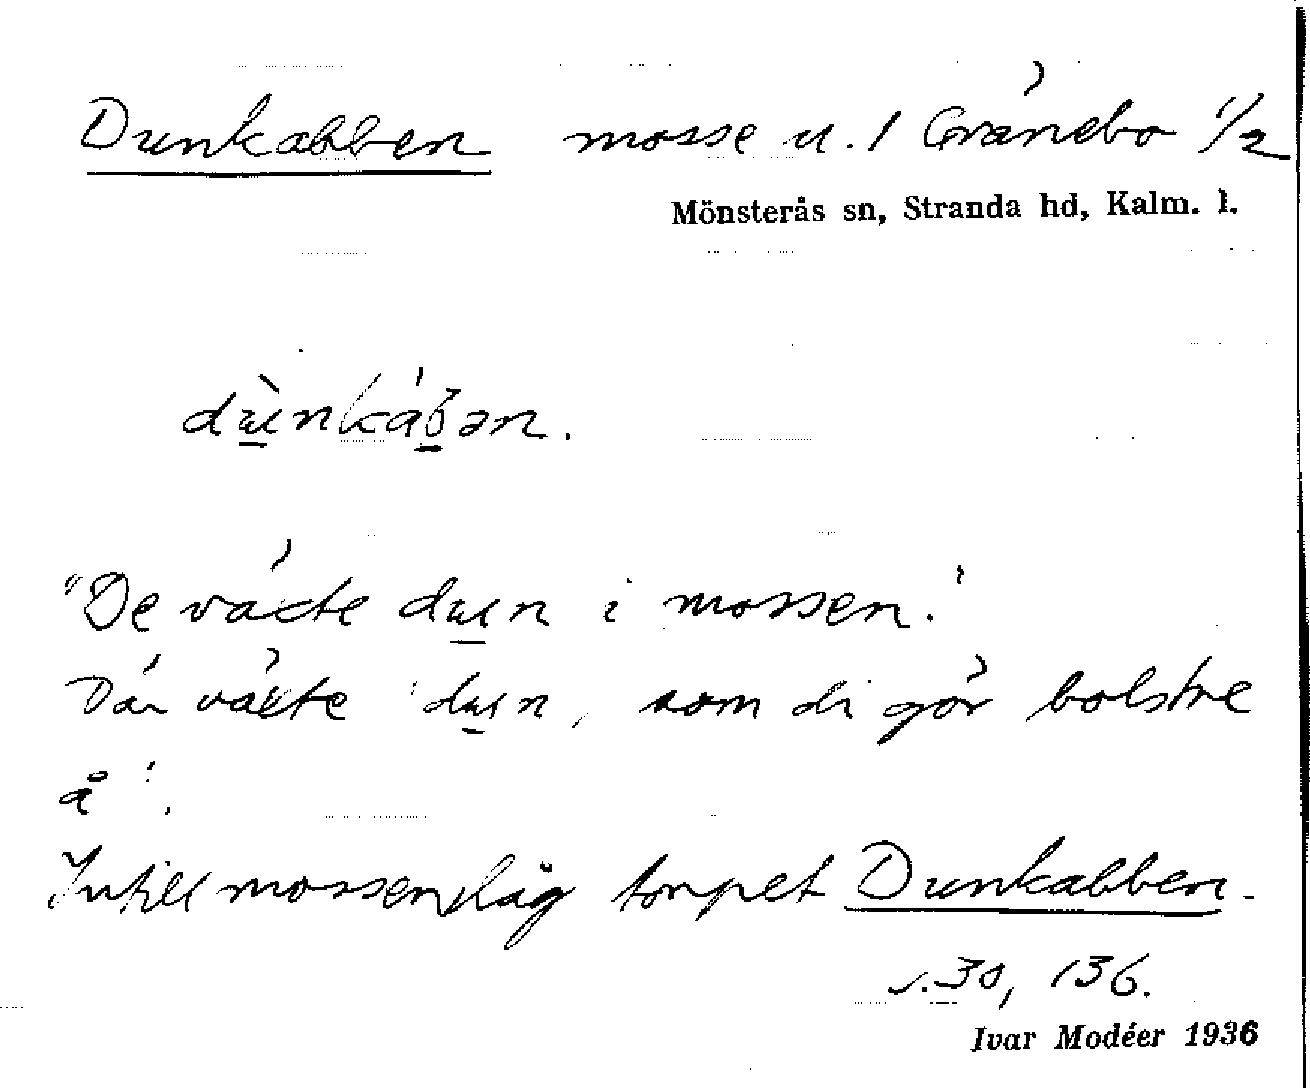 Dunkabben mosse u. 1 Gränebo 1/2
Mönsterås sn, Stranda hd, Kalm. l.
dùnkábən.
"De växte dun i mossen."
Där växte dun, som di gör bolstre
å".
Intill mossen låg torpet Dunkabben.
s. 30, 136.
Ivar Modéer 1936